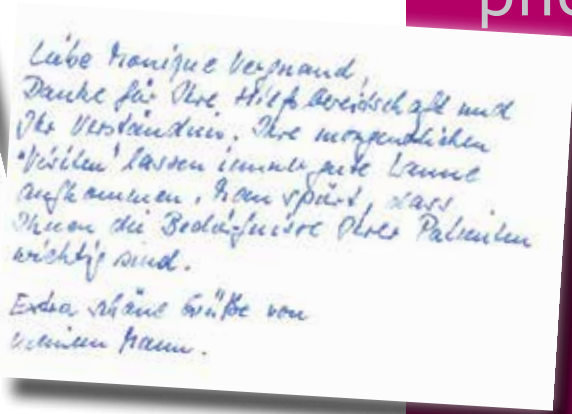 Liebe Monique Vergnand,
Danke für Ihre Hilfsbereitschaft und
Ihr Verständnis. Ihre morgendlichen
"Visiten" lassen immer gute Laune
aufkommen. Man spürt, dass
Ihnen die Bedürfnisse Ihrer Patienten
wichtig sind.
Extra schöne Grüße von
meinem Mann.